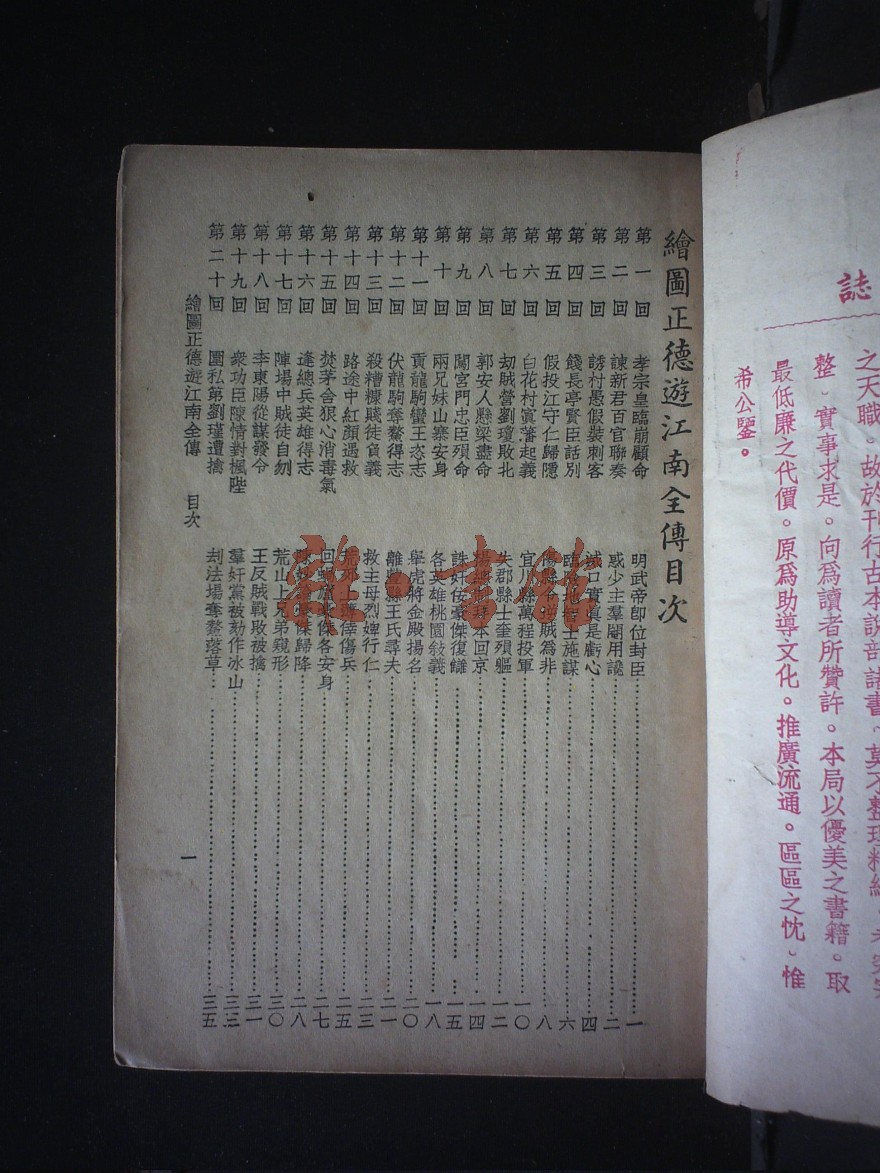 誌
之天職。故於刊行古本說部諸書、莫不整理精
整、實事求是。向爲讀者所贊許。本局以優美之書籍。取
最低廉之代價。原爲助導文化。推廣流通。區區之忱、惟
希公鑒。
繪圖正德遊江南全傳目次
第一回 孝宗皇臨崩顧命 明武帝卽位封臣 一
第二回 諫新君百官聯奏 惑少主羣閹用讒 二
第三回 誘村愚假裝刺客 滅口實眞是虧心 四
第四回 餞長亭賢臣話別 臨 智士施謀 六
第五回 假投江守仁歸隱 傷 賊爲非 八
第六回 白花村寘藩起義 宜 縣萬程投軍 一〇
第七回 刧賊營劉瓊敗北 失郡縣士奎殞軀 一二
第八回 郭安人懸梁盡命 楊 本回京 一四
第九回 闖宮門忠臣殞命 誅奸佞豪傑復讎 一五
第十回 兩兄妹山寨安身 各英雄桃園敍義 一八
第十一回 貢龍駒蠻王恣志 舉虎將金殿揚名 二〇
第十二回 伏龍駒奪鰲得志 離 縣王氏尋夫 二一
第十三回 殺糟糠賤徒負義 救主母烈婢行仁 二三
第十四回 路途中紅顏遇救 荒 倖傷兵 二五
第十五回 焚茅舍狠心消毒氣 回 傑各安身 二七
第十六回 逢總兵英雄得志 傑歸降 二八
第十七回 陣場中賊徒自刎 荒山上兄弟窺形 三〇
第十八回 李東陽從謀發令 王反賊戰敗被擒 三一
第十九回 衆功臣陳情對楓陛 羣奸黨被劾作冰山 三三
第二十回 圍私第劉瑾遭擒 刦法場奪鰲落草 三五
繪圖正德遊江南全傳 目次
一
雜·書館